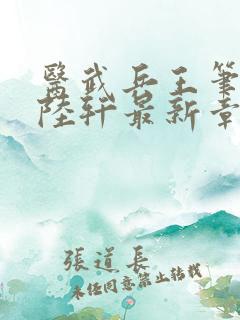 醫武兵王筆
陸軒最新章
張道長
未经同意禁止转载